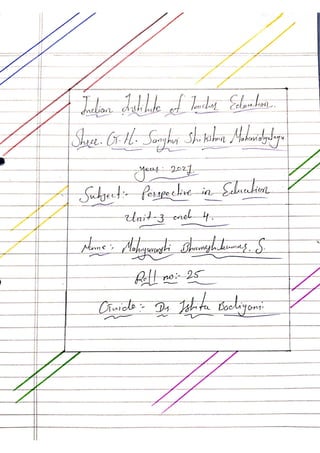 Indian Institute of Teacher Education.
Shree. G. H. Sanghvi Shikshan Mahavidyalaya
year: 2021
Subject:- Perspective in Education
Unit-3 and 4.
Name:- Bharatkumar. S.
Roll no:- 25
Guide:- Dr Ishita